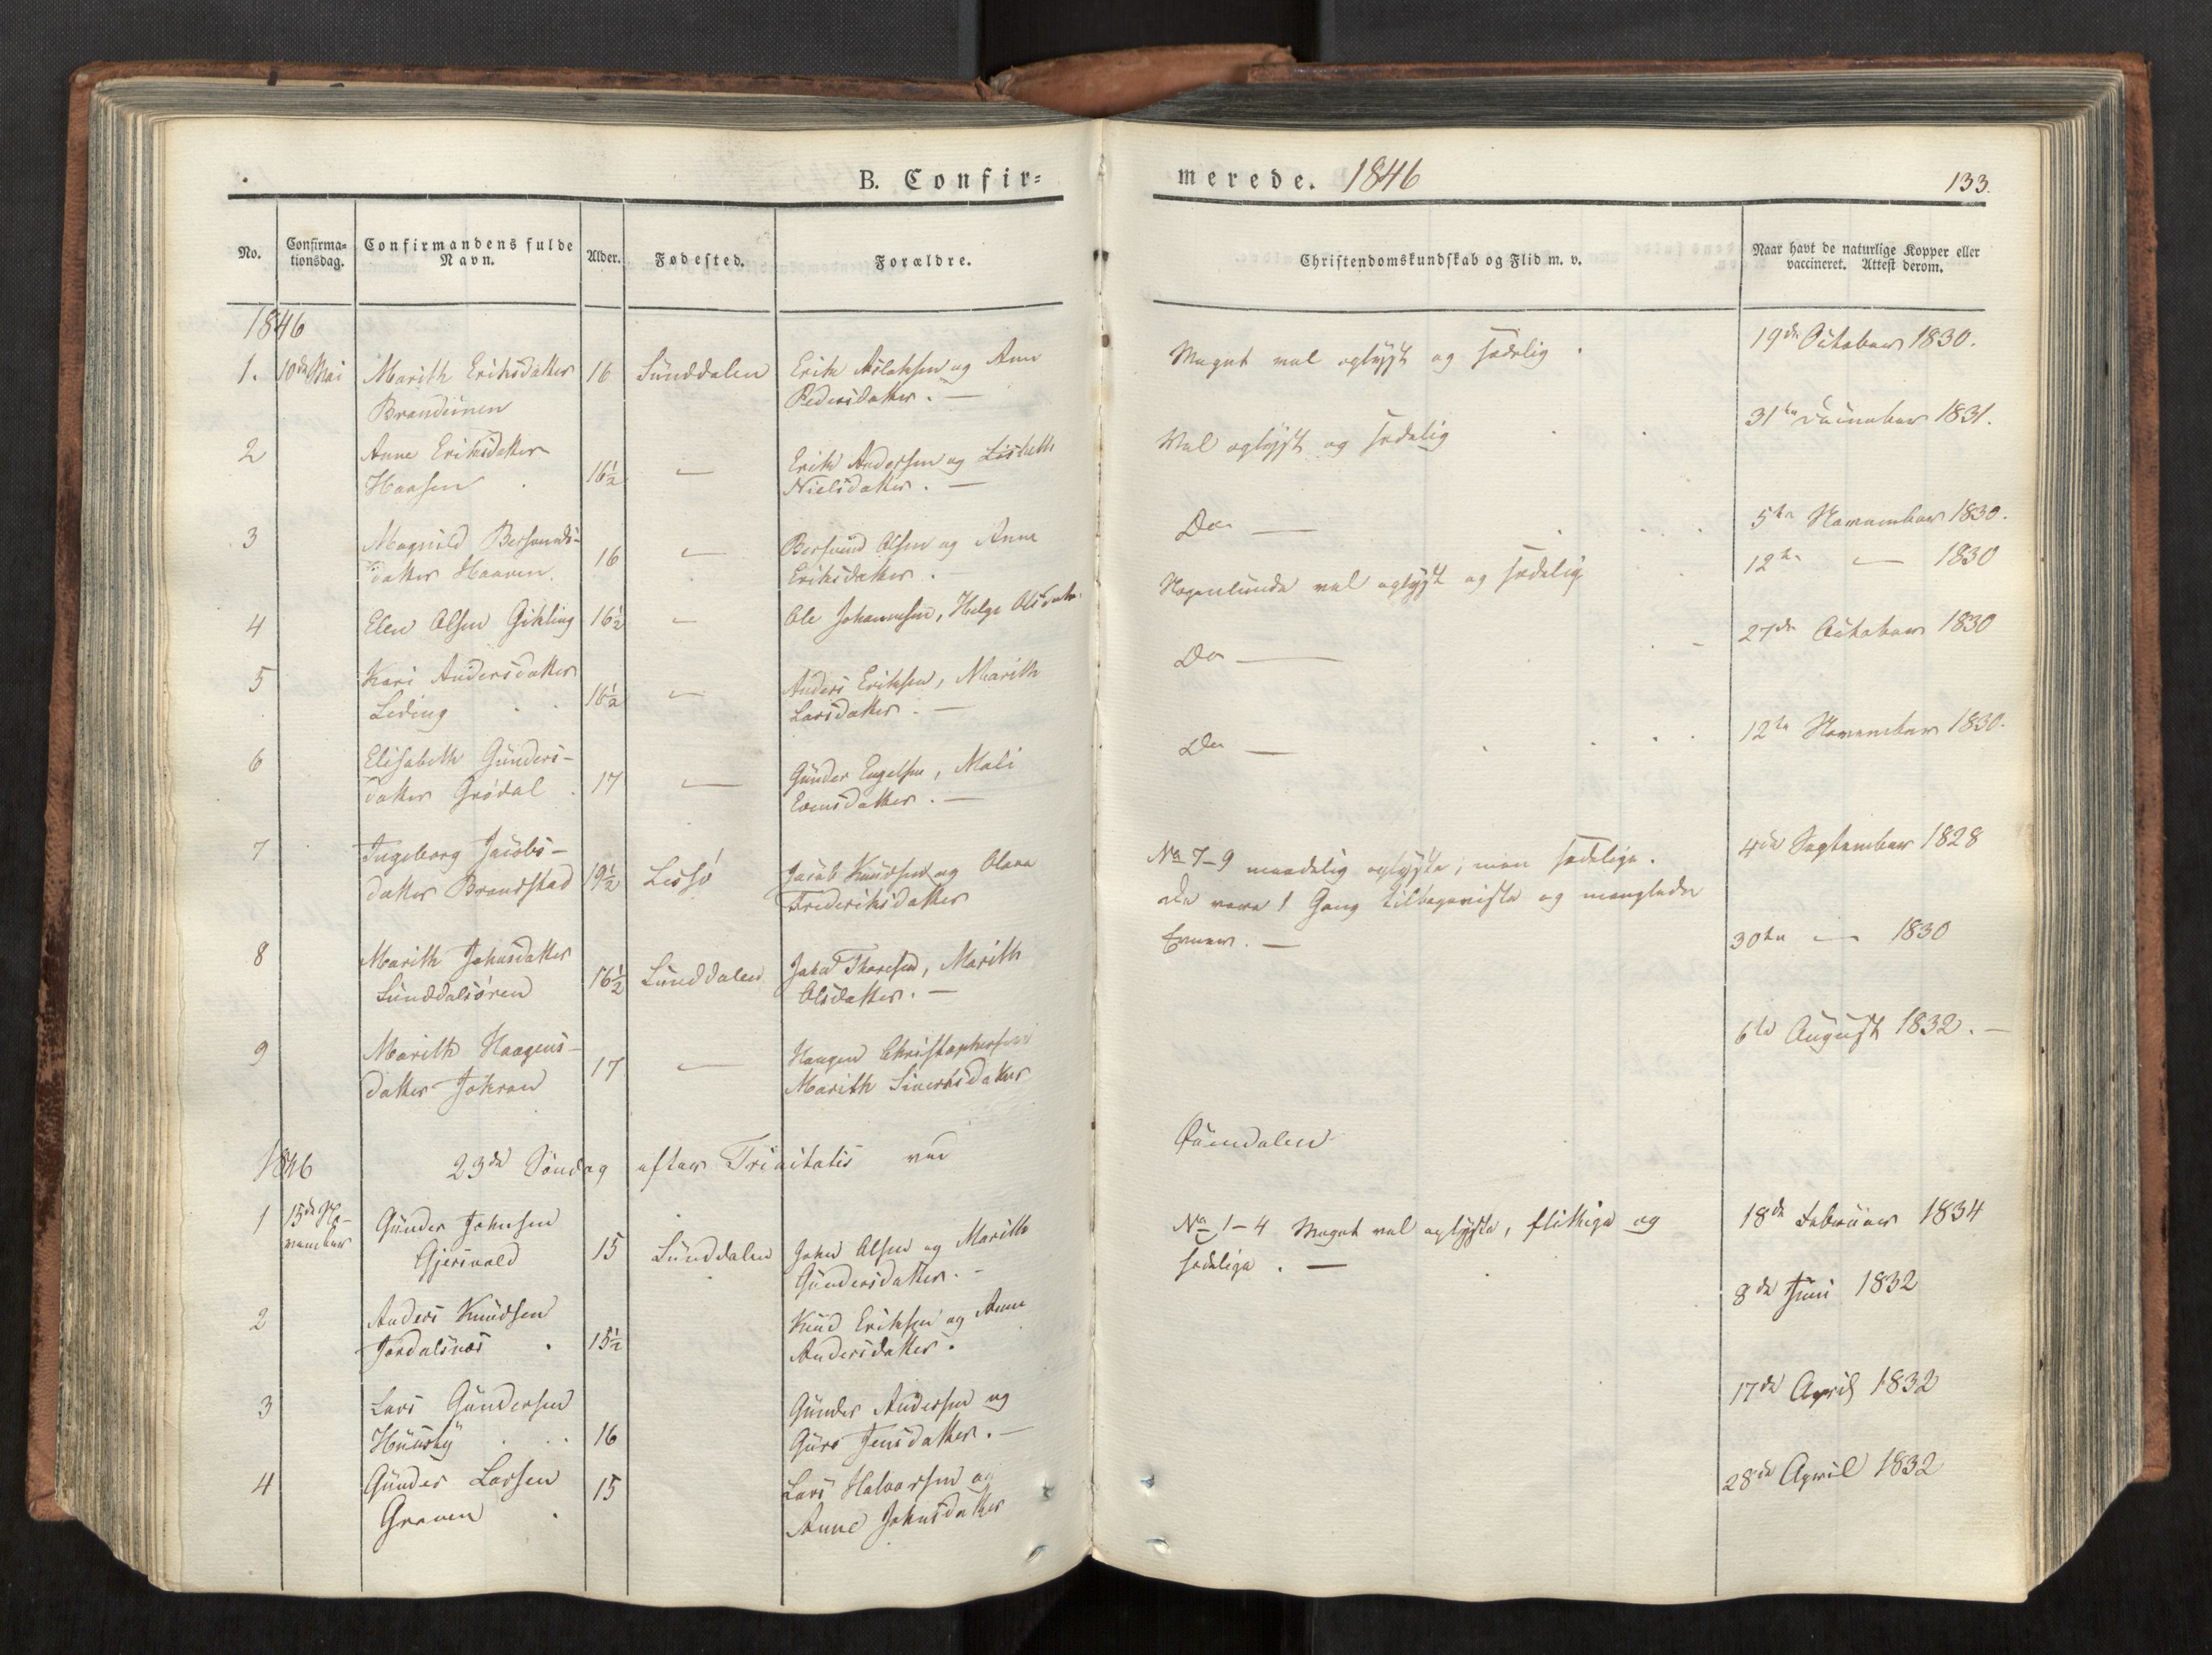 B. Confir=
No.
Confirma=
tionsdag.
Confirmandens fulde
Navn.
Alder.
Fødested.
Forældre.
1846
1. 10de Mai Marith Eriksdatter 16 Sunddalen Erik Aslaksen og Ane
Pedersdatter. —
2 Anne Eriksdatter
16½ — Erik Andersen og Lisbeth
Nielsdatter. —
3 Magnild Bersvends-
datter Haaven. 16 — Bersvend Olsen og Anne
Eriksdatter.
4 Elen Olsen Gikling 16½ — Ole Johannesen, Helge Olsdatr.
5 Kari Andersdatter
Leding 16½ — Anders Eriksen, Marith
Larsdatter. —
6 Elisabeth Gunders-
datter Grødal. 17 — Gunder Engelsen, Mali
Evensdatter. —
7 Ingeborg Jacobs-
datter Brandstad 19½ Lessø Jacob Knudsen og
Frederiksdatter
8 Marith Johnsdatter
Sunddalsøren 16½ Sunddalen John Thoresen, Marith
Olsdatter. —
9 Marith Haagens-
datter 17 — Haagen Christophersen
Marith Siverthsdatter
1846 23de Søndag efter Trinitatis ved
1 15de No-
vember Gunder Johnsen
Gjersvold 15 Sunddalen John Olsen og Marith
Gundersdatter. -
2 Anders Knudsen
Jordalsnæs . 15½ Knud Eriksen og Anne
Andersdatter.
3 Lars Gundersen
Huusby . .. 16 Gunder Andersen og
Guro Jensdatter. —
4 Gunder Larsen
Graven . 15 Lars Halvorsen og
Anne Johnsdatter
merede. 1846
133.
Christendomskundskab og Flid m. v.
Naar havt de naturlige Kopper eller
vaccineret. Attest derom.
Meget vel oplyst og sædelig . 19de October 1830.
Vel oplyst og sædelig . . 31te December 1831.
Do — 5te November 1830.
Nogenlunde vel oplyst og sædelig 12te — 1830
Do — 27de October 1830
Do — 12te November 1830.
No 7-9 maadelig oplyste, men sædelige. 4de September 1828
De vare 1 Gang tilbageviste og manglede
Evner. — 30te — 1830
6te August 1832. —
Romdalen
No 1-4 Meget vel oplyste, flittige og 18de Februar 1834
sædelige . —
8de Juni 1832
17de April 1832
28de April 1832